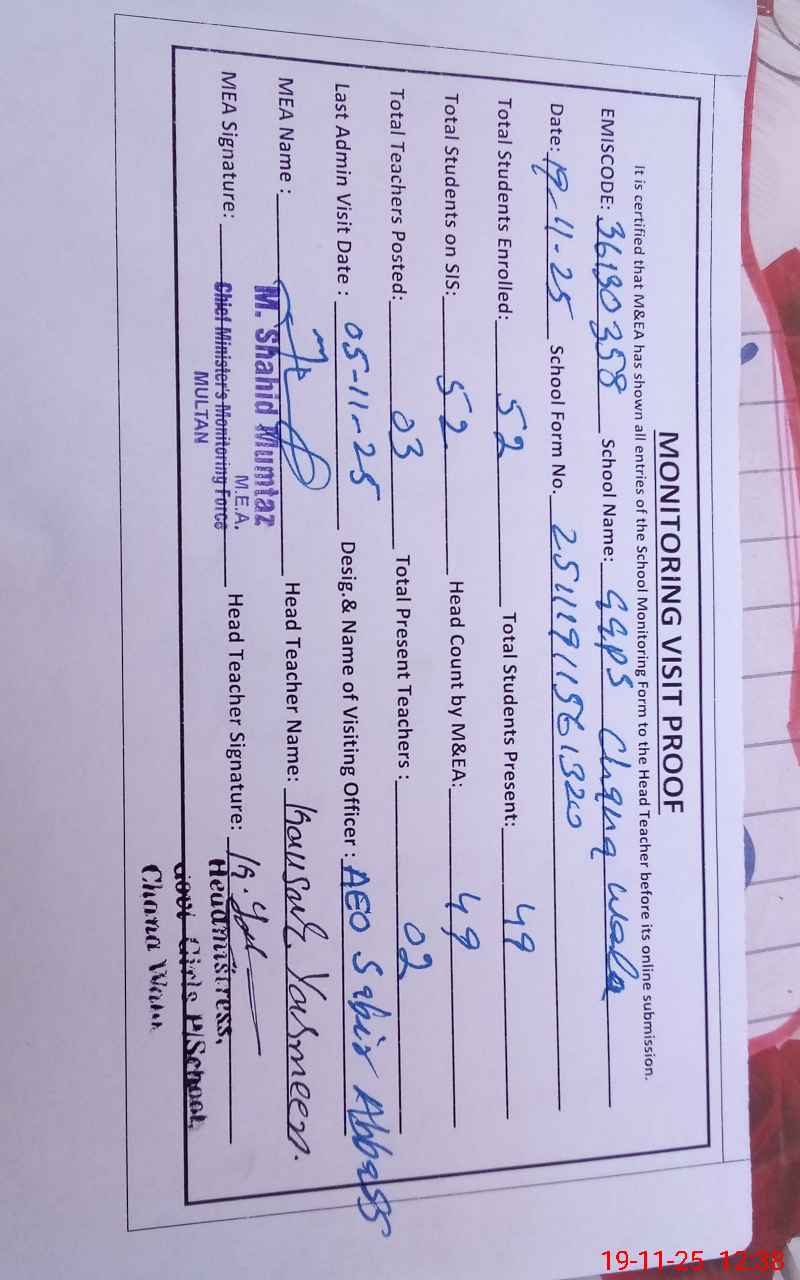 MONITORING VISIT PROOF
It is certified that M&EA has shown all entries of the School Monitoring Form to the Head Teacher before its online submission.
EMISCODE: 36130358 School Name: GGPS Chana Wala
Date: 19-11-25 School Form No.
Total Students Enrolled: 52 Total Students Present: 49
Total Students on SIS: 52 Head Count by M&EA: 49
Total Teachers Posted: 03 Total Present Teachers : 02
Last Admin Visit Date : 05-11-25 Desig.& Name of Visiting Officer : AEO Sabir Abbass
MEA Name : Head Teacher Name: Kausar Yasmeen.
M. Shahid Mumtaz
M.E.A.
MEA Signature: Head Teacher Signature:
Chief Minister's Monitoring Force
MULTAN
Headmistress,
Govt Girls P/School,
Chana Wala
19-11-25 12:38